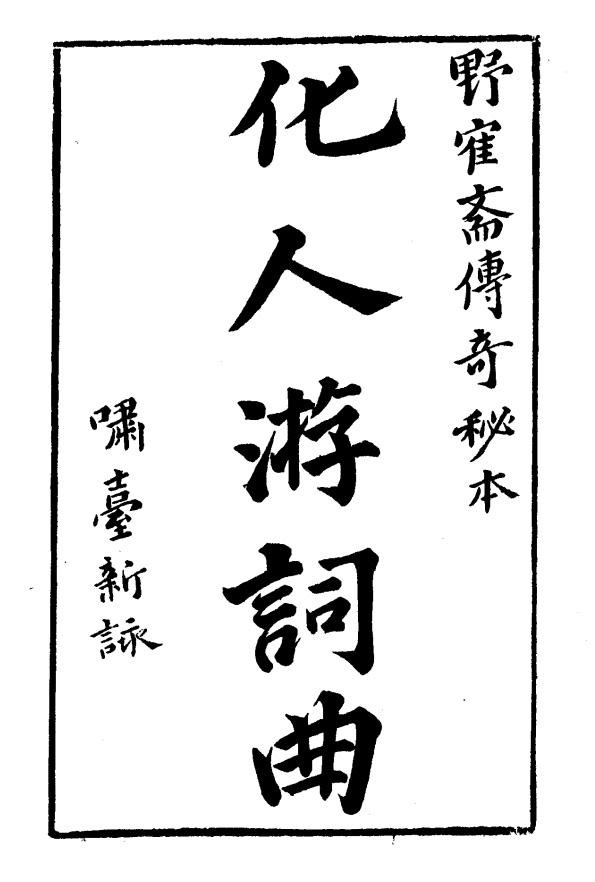 野寉斋傳奇秘本
化人游詞曲
嘯臺新詠